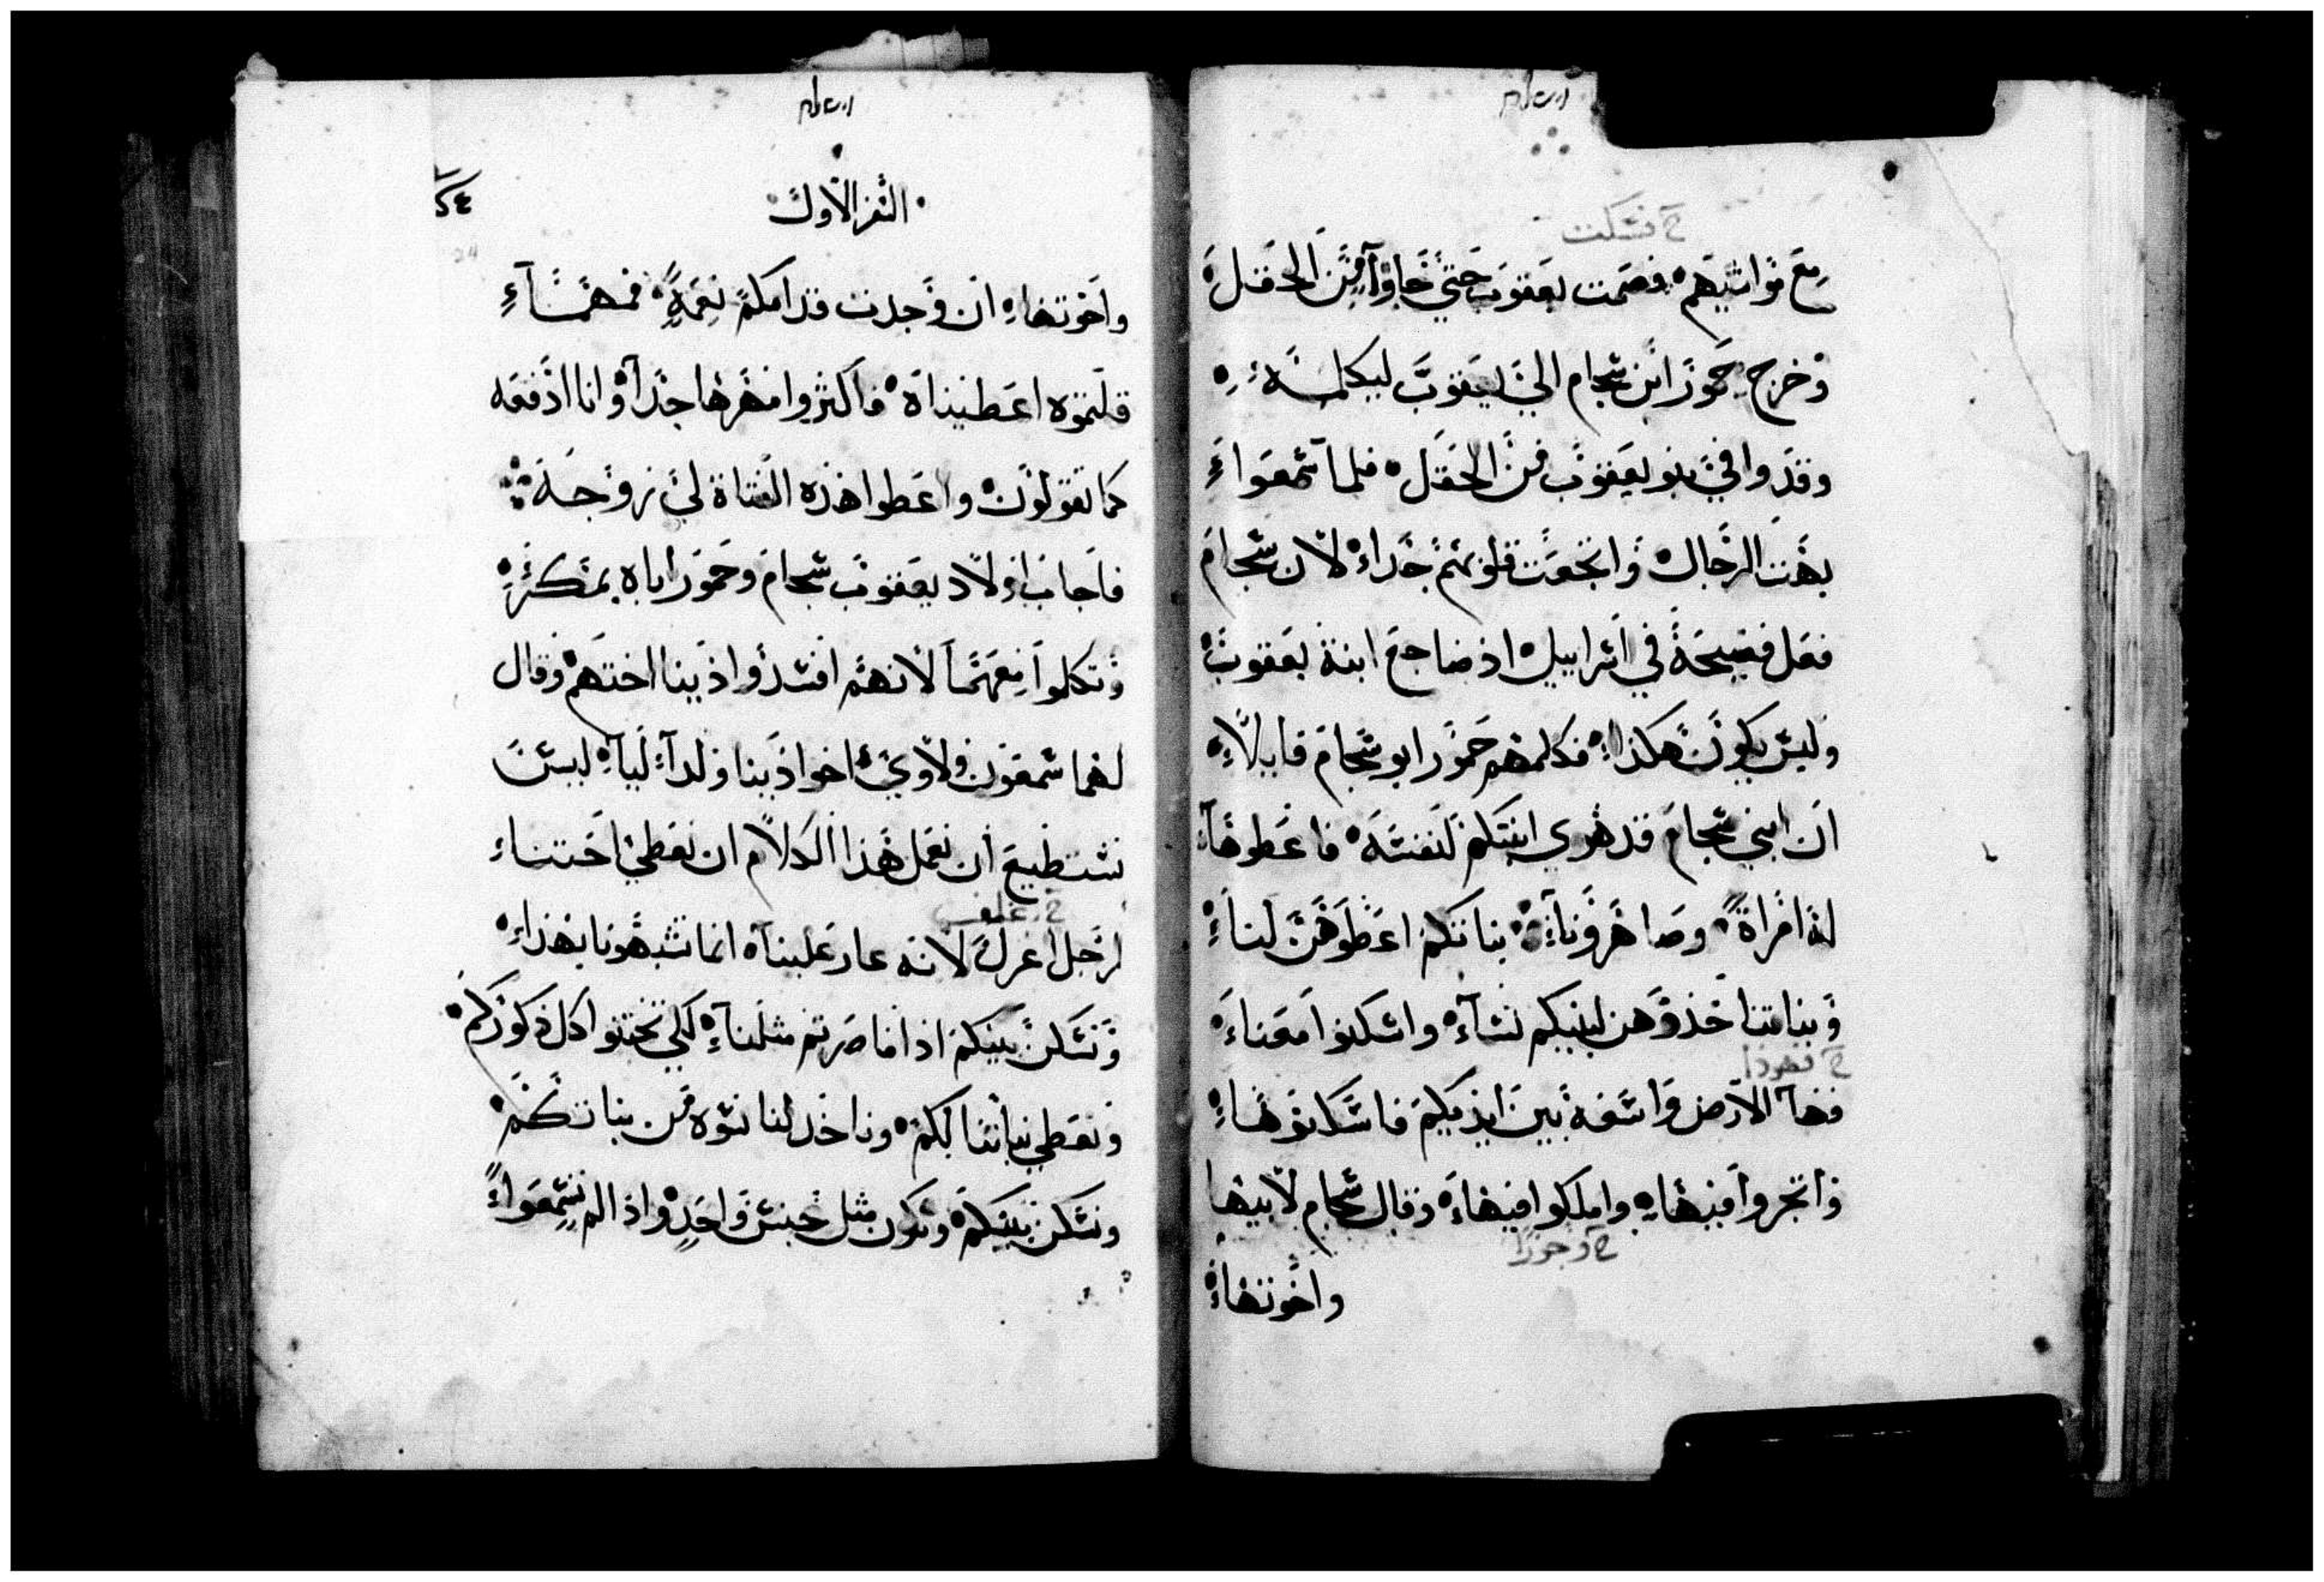 خ فسكت
مع مواشيهم فصمت يعقوب حتي جاوا من الحقل
وخرج حمور ابن شجام الي يعقوب ليكلمه
وقد وافي بنو يعقوب من الحقل فلما سمعوا
بهت الرجال واتجعت قلوبهم جدا لان شجام
فعل فضيحة في اسراييل اذ ضاجع ابنة يعقوب
وليس يكون هكذا فكلمهم حمور ابو شجام قايلا
ان ابني شجام قد هوي ابنتكم لنفسه فاعطوها
له امراة وصاهرونا بناتكم اعطوهن لنا
وبناتنا خذوهن لبنيكم نسآء واسكنوا معنا
خ فهوذا
فها الارض واسعه بين ايديكم فاسكنوها
واتجروا فيها واملكوا فيها وقال شجام لابيها
خ وجوزا
واخوتها
السفر الاول
٢٤
24
واخوتها ان وجدت قدامكم نعمة فمهما
قلتموه اعطيناه فاكثروا مهرها جدا وانا ادفعه
كما تقولون واعطوا هذه الفتاة لي زوجه
فاجاب اولاد يعقوب شجام وحمور اباه بمكر
وتكلوا معهما لانهم افسدوا ذينا اختهم وقال
لهما شمعون ولاوي اخوا ذينا ولدا ليا ليس
نستطيع ان نعمل هذا الكلام ان نعطي اختنا
خ غلف
لرجل اغرل لانه عار علينا انما تشبهونا بهذا
ونسكن بينكم اذا ما صرتم مثلنا لكي تختنوا كل ذكوركم
ونعطي بناتنا لكم وناخذ لنا نسوه من بناتكم
ونسكن بينكم ونكون مثل جنس واحد واذا لم تسمعوا